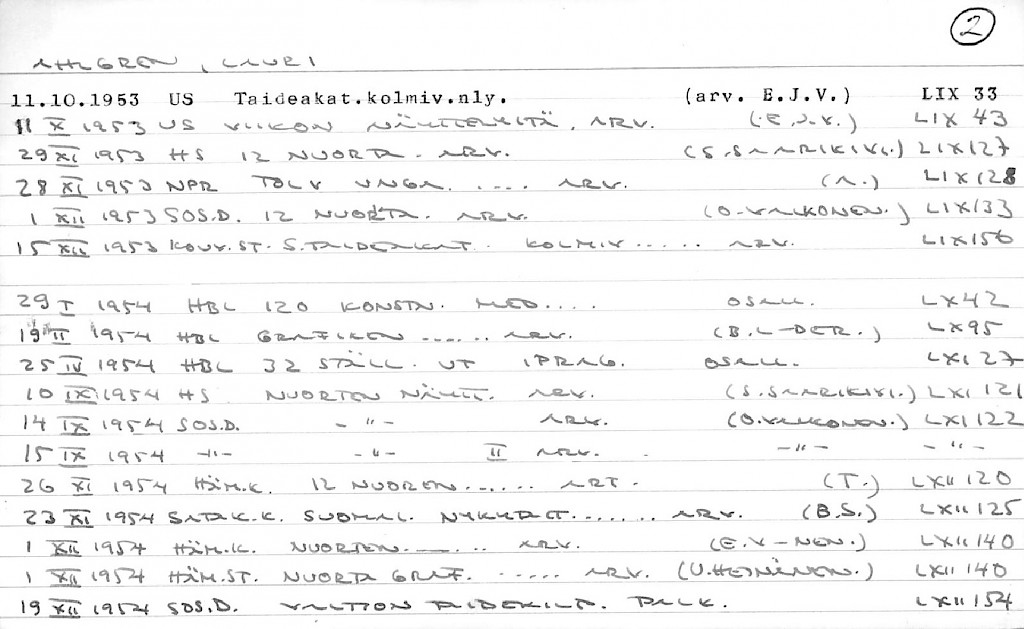 2
AHLGREN, LAURI
11.10.1953 US Taideakat.kolmiv.nly. (arv. E.J.V.) LIX 33
11 X 1953 US VIIKON NÄYTTELYITÄ, ARV. (E.J.V.) LIX 43
29 XI 1953 HS 12 NUORTA. ARV. (S.SAARIKIVI.) LIX127
28 XI 1953 NPR TOLV UNGA..... ARV. (A.) LIX128
1 XII 1953 SOS.D. 12 NUORTA. ARV. (O.VALKONEN.) LIX133
15 XII 1953 KOUV.ST. S.TAIDEAKAT. KOLMIV..... ARV. LIX156
29 I 1954 HBL 120 KONSTN. MED.... OSALL. LX42
19 II 1954 HBL GRAFIKEN...... ARV. (B.L-DER.) LX95
25 IV 1954 HBL 32 STÄLL. UT I PRAG. OSALL. LXI27
10 IX 1954 HS NUORTEN NÄYTT. ARV. (S.SAARIKIVI.) LXI 121
14 IX 1954 SOS.D. -"- ARV. (O.VALKONEN.) LXI 122
15 IX 1954 -"- -"- II ARV. -"- -"-
26 XI 1954 HÄM.K. 12 NUOREN...... ART. (T.) LXII 120
23 XI 1954 SATAK.K. SUOMAL. NYKYTAIT....... ARV. (B.S.) LXII125
1 XII 1954 HÄM.K. NUORTEN...... ARV. (E.V-NEN.) LXII140
1 XII 1954 HÄM.ST. NUORTA GRAF. ..... ARV. (U.HEINÄNEN.) LXII 140
19 XII 1954 SOS.D. VALTION TAIDEKILP. PALK. LXII154